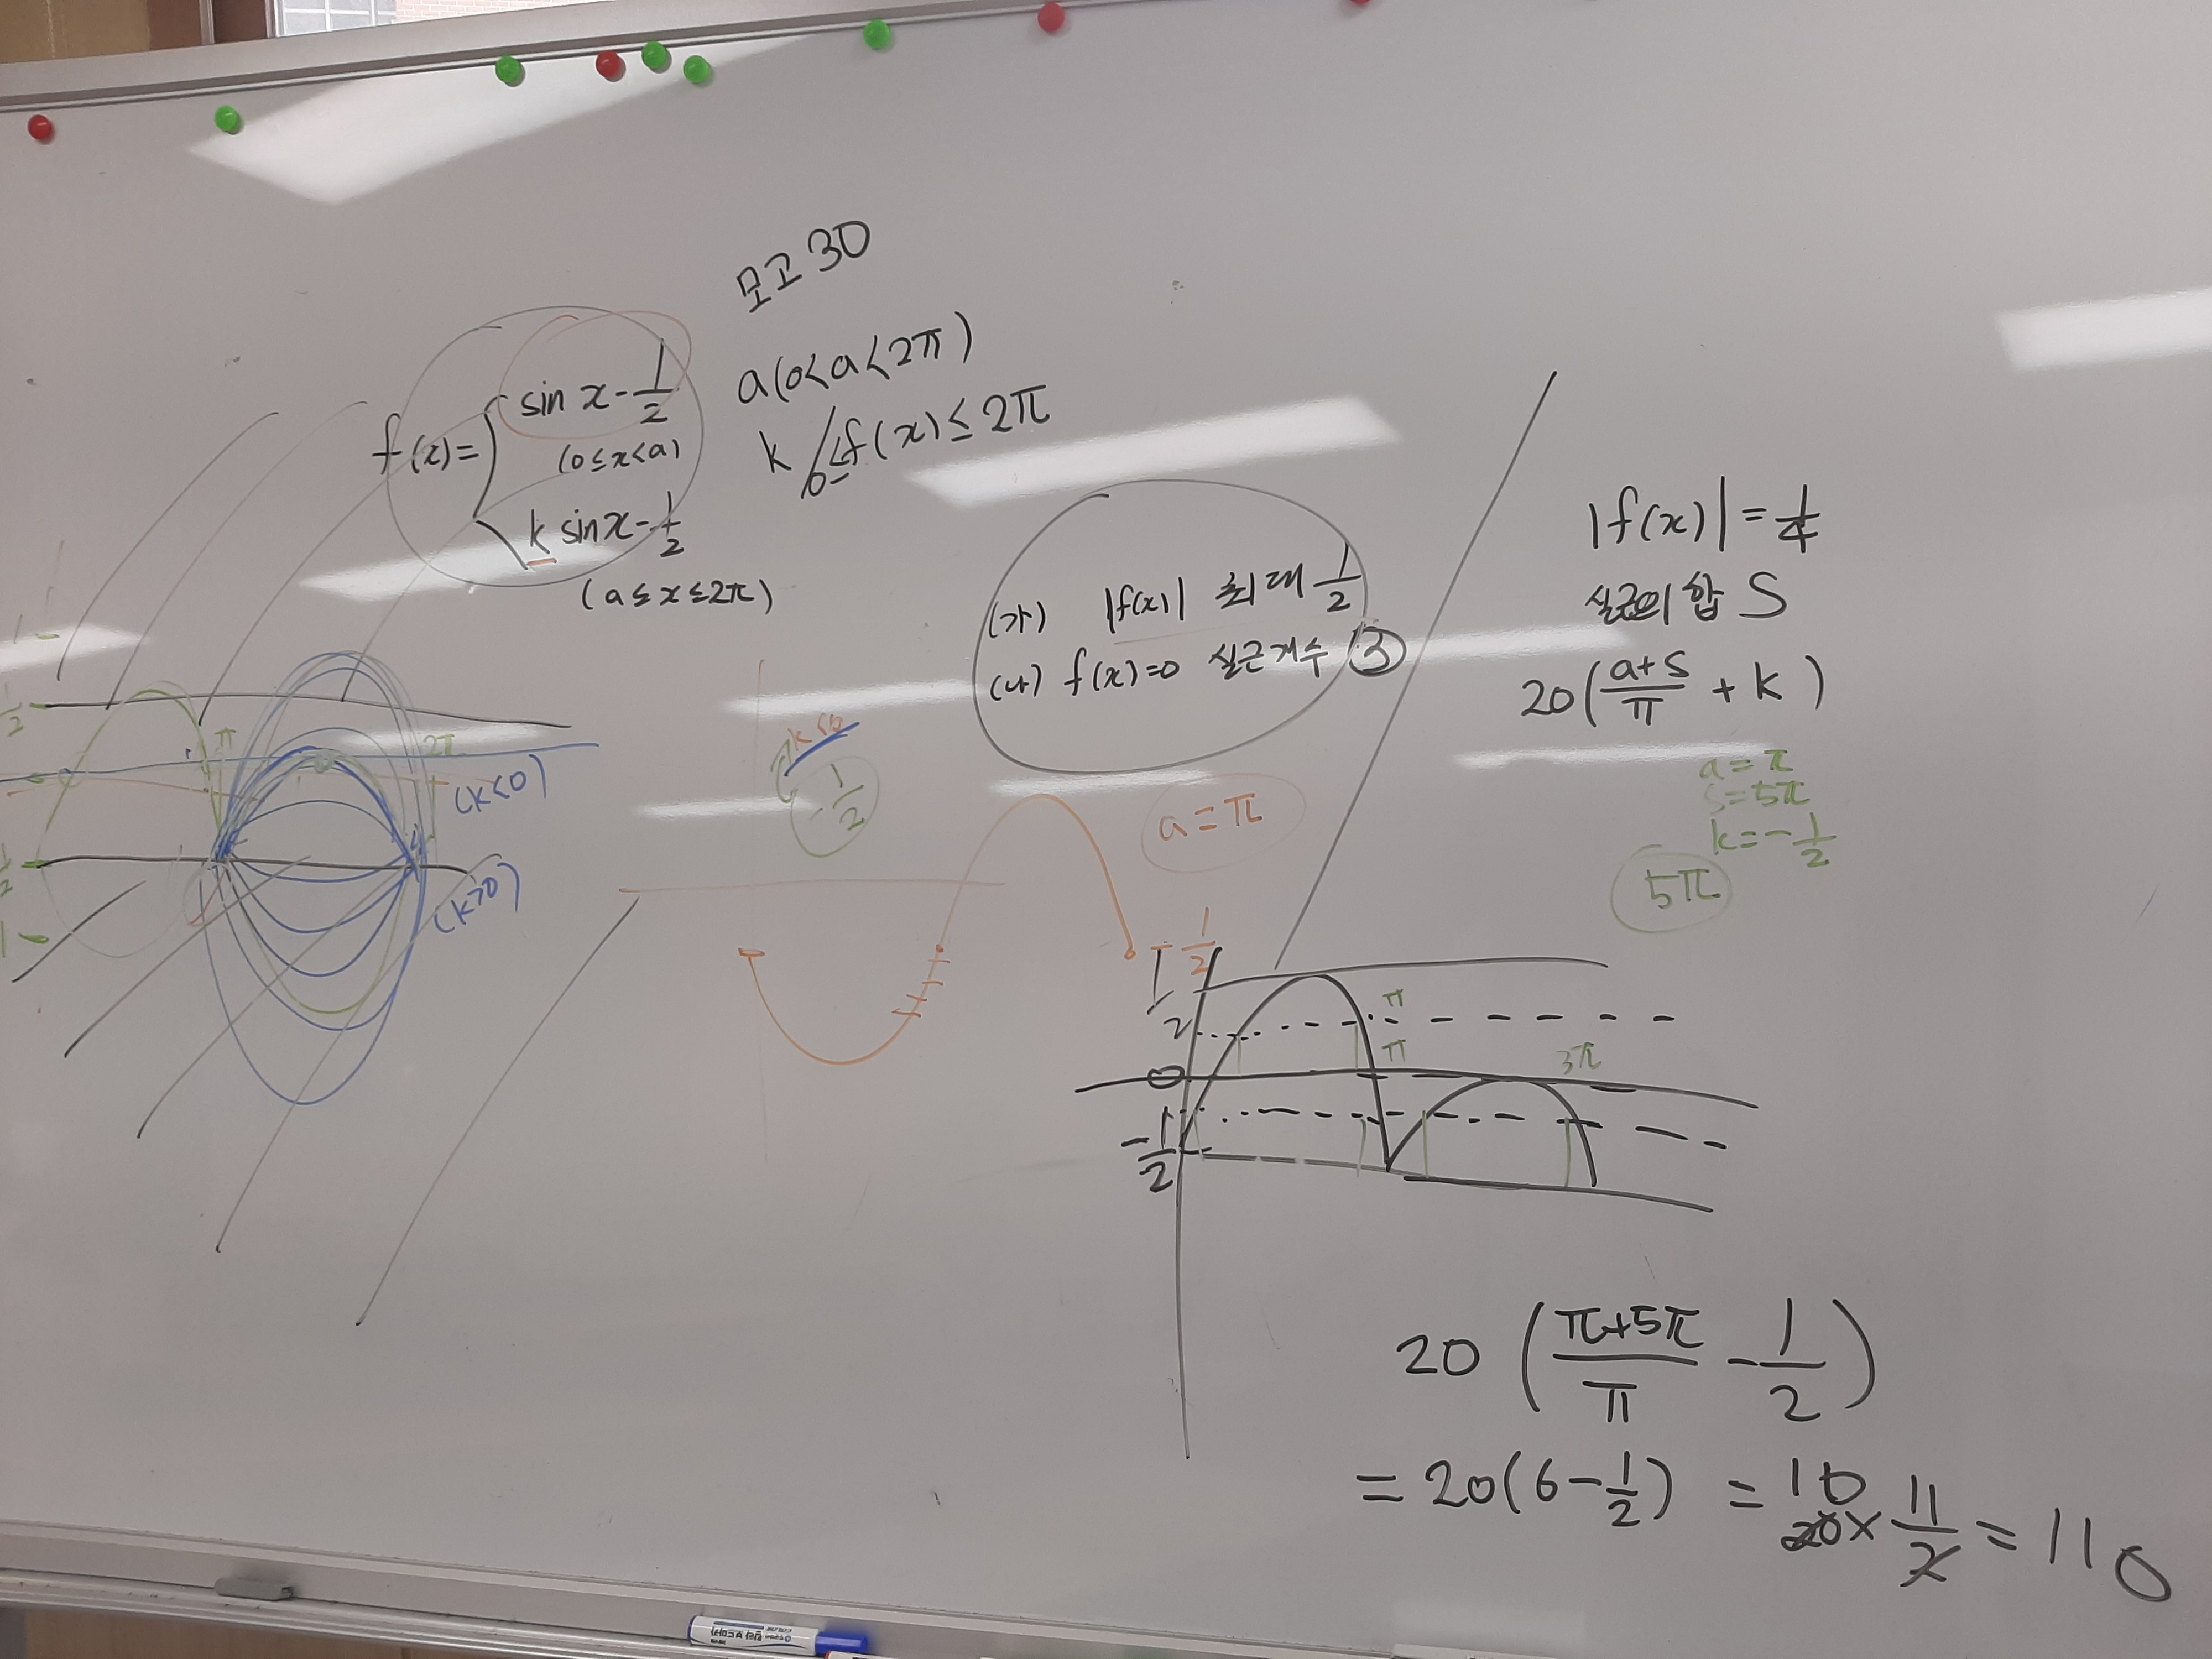 모고 30
f(x)= { sin x - 1/2
(0≤x<a)
k sin x - 1/2
(a≤x≤2π)
a(0<a<2π)
k / 0≤f(x)≤2π
(가) |f(x)| 최대 1/2
(나) f(x)=0 실근개수 ③
|f(x)| = 1/4
실근의 합 S
20( (a+S)/π + k )
a = π
S = 5π
k = -1/2
5π
π
2π
(k<0)
(k>0)
-1/2
a = π
-1/2
π
π
3π
0
-1/2
20 ( (π+5π)/π - 1/2 )
= 20(6 - 1/2) = 10
20 × 11/2 = 110